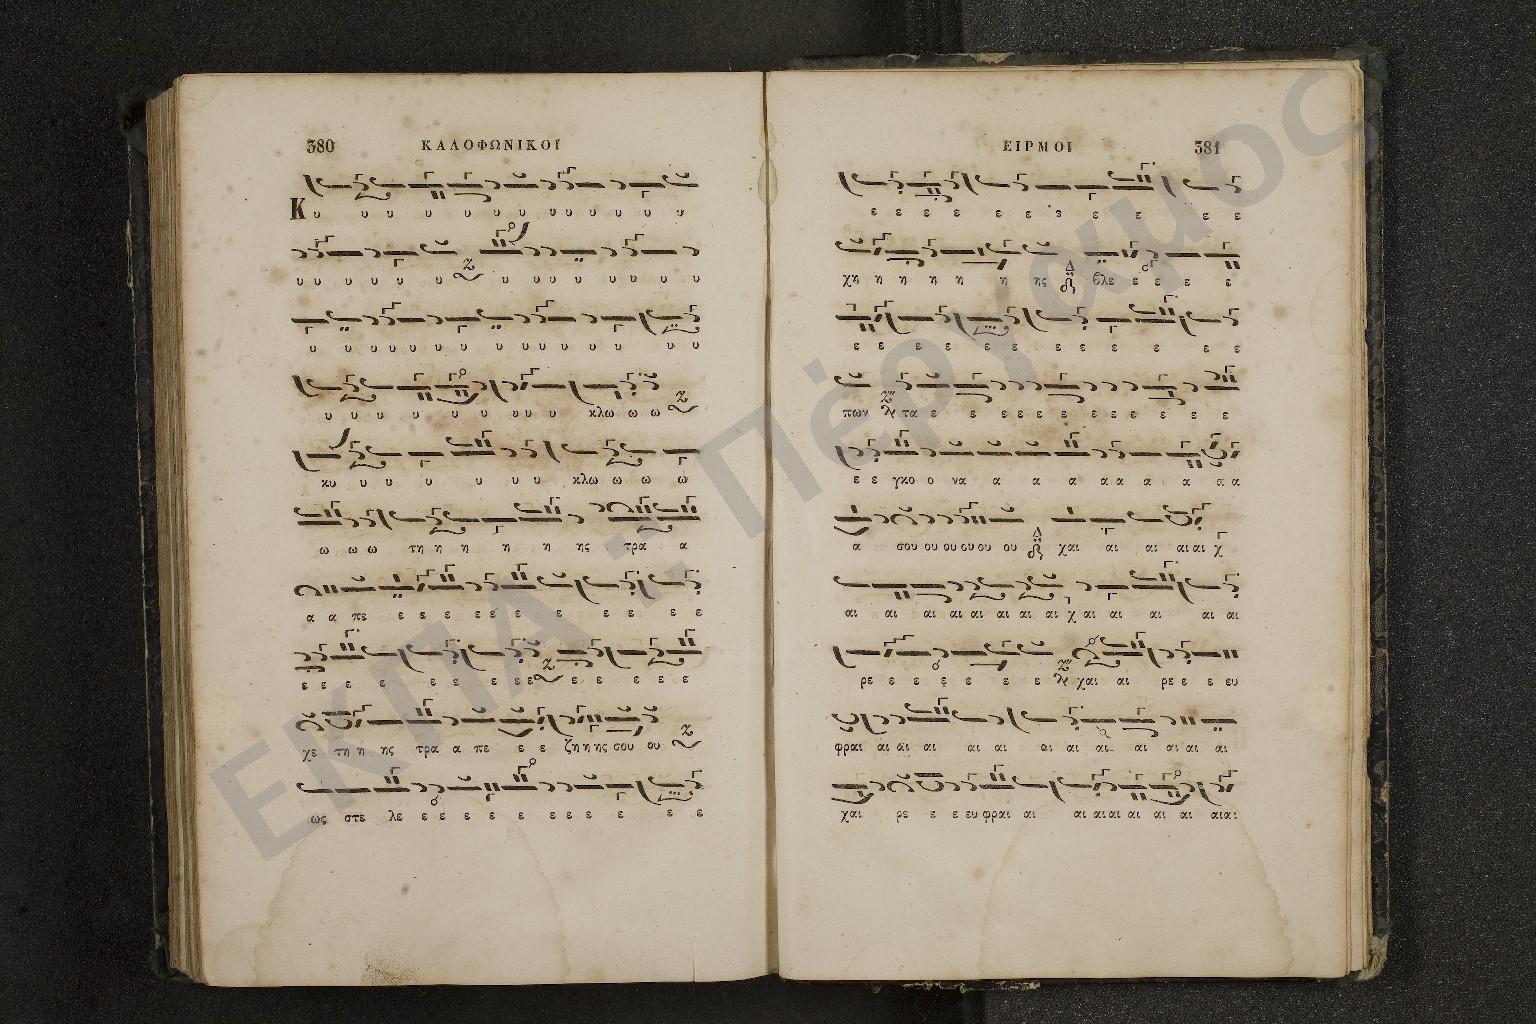 380 ΚΑΛΟΦΩΝΙΚΟΙ
Κυ υ υ υ υ υ υ υ υ υ υ υ υ υ
υ υ υ υ υ υ υ υ υ υ υ υ υ υ
υ υ υ υ υ υ υ υ υ υ υ υ υ υ
υ υ υ υ υ υ υ υ υ κλω ω ω
κυ υ υ υ υ υ υ κλω ω ω ω
ω ω ω τη η η η η ης τρα α
α α πε ε ε ε ε ε ε ε ε ε ε ε ε
ε ε ε ε ε ε ε ε ε ε ε ε ε ε
χε τη η ης τρα α πε ε ε ζη η ης σου ου
ως στε λε ε ε ε ε ε ε ε ε ε ε ε ε
ΕΙΡΜΟΙ 381
ε ε ε ε ε ε ε ε ε ε ε
χη η η η η η ης βλε ε ε ε ε
ε ε ε ε ε ε ε ε ε ε ε ε
πων τα ε ε ε ε ε ε ε ε ε ε ε ε
ε ε γκο ο να α α α α α α α α α
α σου ου ου ου ου ου χαι αι αι αι αι χ
αι αι αι αι αι αι αι αι χ αι αι αι αι αι
ρε ε ε ε ε ε ε ε χαι αι ρε ε ε ευ
φραι αι αι αι αι αι αι αι αι αι αι αι αι
χαι ρε ε ε ευ φραι αι αι αι αι αι αι αι αι αι
ΕΚΠΑ : Πέργαμος